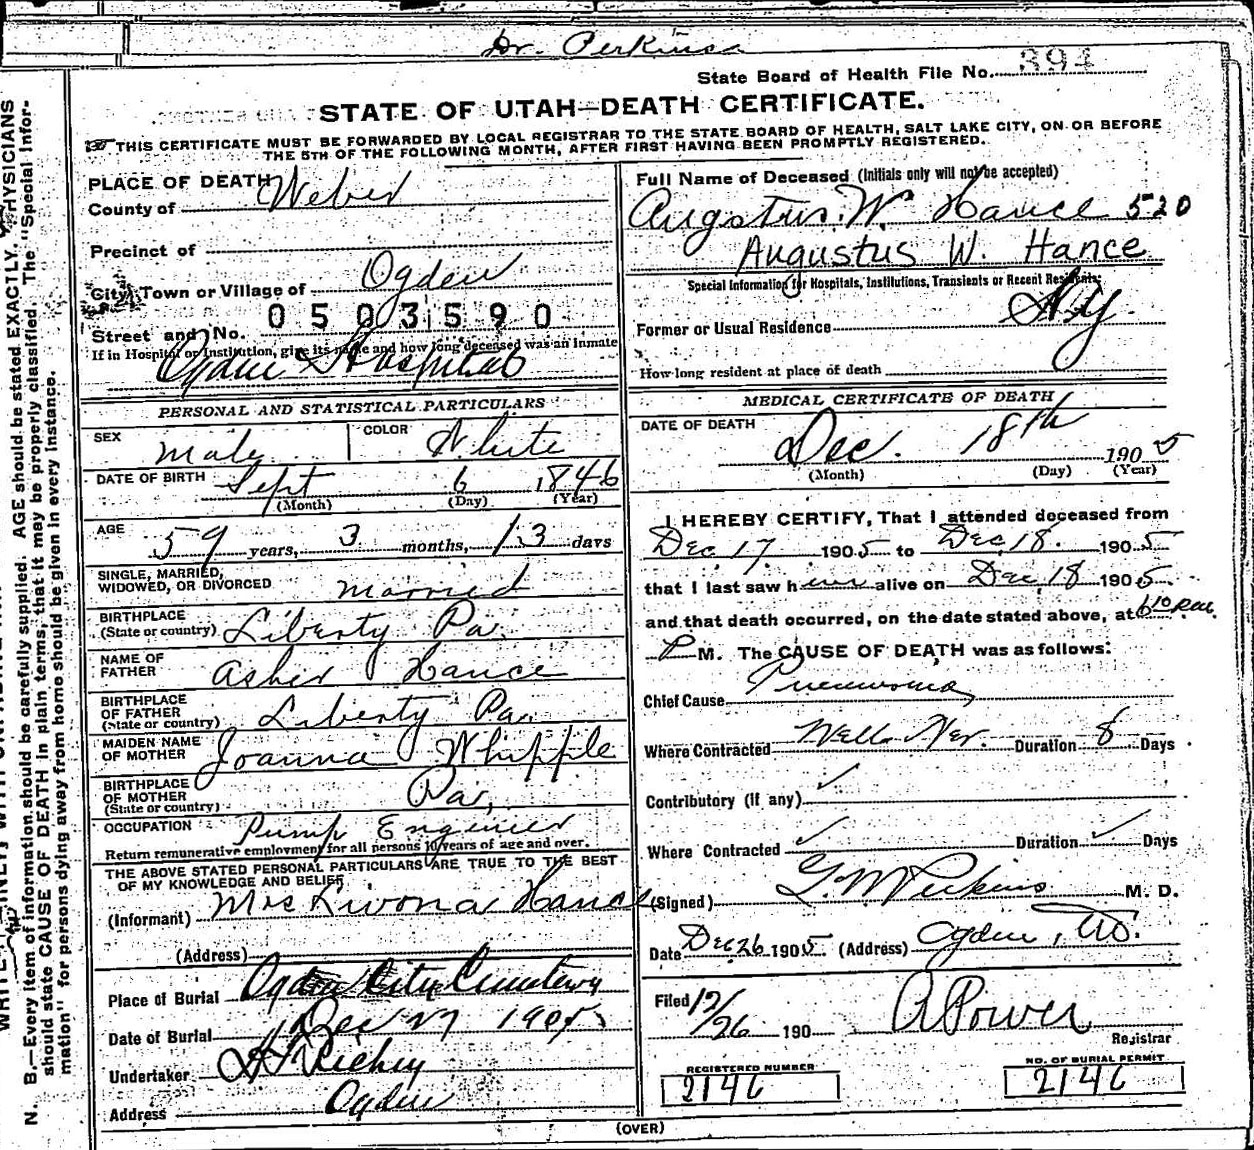 Dr. Perkins
State Board of Health File No. 394
STATE OF UTAH—DEATH CERTIFICATE.
THIS CERTIFICATE MUST BE FORWARDED BY LOCAL REGISTRAR TO THE STATE BOARD OF HEALTH, SALT LAKE CITY, ON OR BEFORE
THE 5TH OF THE FOLLOWING MONTH, AFTER FIRST HAVING BEEN PROMPTLY REGISTERED.
PLACE OF DEATH
County of Weber
Precinct of
City, Town or Village of Ogden
0503590
Street and No.
If in Hospital or Institution, give its name and how long deceased was an Inmate
Ogden Hospital
PERSONAL AND STATISTICAL PARTICULARS
SEX Male COLOR White
DATE OF BIRTH Sept 6 1846
(Month) (Day) (Year)
AGE 59 years, 3 months, 13 days
SINGLE, MARRIED,
WIDOWED, OR DIVORCED married
BIRTHPLACE
(State or country) Liberty Pa.
NAME OF
FATHER Asher Hance
BIRTHPLACE
OF FATHER
(State or country) Liberty Pa.
MAIDEN NAME
OF MOTHER Joanna Whipple
BIRTHPLACE
OF MOTHER
(State or country) Pa,
OCCUPATION Pump Engineer
Return remunerative employment for all persons 10 years of age and over.
THE ABOVE STATED PERSONAL PARTICULARS ARE TRUE TO THE BEST
OF MY KNOWLEDGE AND BELIEF
(Informant) Mrs Hance
(Address)
Place of Burial Ogden City Cemetery
Date of Burial Dec 27 1905
Undertaker Richey
Address Ogden
Full Name of Deceased (Initials only will not be accepted)
Augstus. W. Hance 520
Augustus W. Hance
Special Information for Hospitals, Institutions, Transients or Recent Residents:
Former or Usual Residence
How long resident at place of death
MEDICAL CERTIFICATE OF DEATH
DATE OF DEATH
Dec. 18th 1905
(Month) (Day) (Year)
I HEREBY CERTIFY, That I attended deceased from
Dec. 17. 1905 to Dec. 18. 1905
that I last saw him alive on Dec 18 1905
and that death occurred, on the date stated above, at 6 10
P M. The CAUSE OF DEATH was as follows:
Chief Cause Pneumonia
Where Contracted Wells Nev. Duration 8 Days
Contributory (if any)
Where Contracted Duration Days
(Signed) G. M. Perkins M. D.
Date Dec 26 1905 (Address) Ogden, Ut.
Filed 12/26 190 A Power
Registrar
REGISTERED NUMBER
2146
NO. OF BURIAL PERMIT
2146
(OVER)
N. B.—Every item of information should be carefully supplied. AGE should be stated EXACTLY. PHYSICIANS
should state CAUSE OF DEATH in plain terms, that it may be properly classified. The "Special Infor-
mation" for persons dying away from home should be given in every instance.